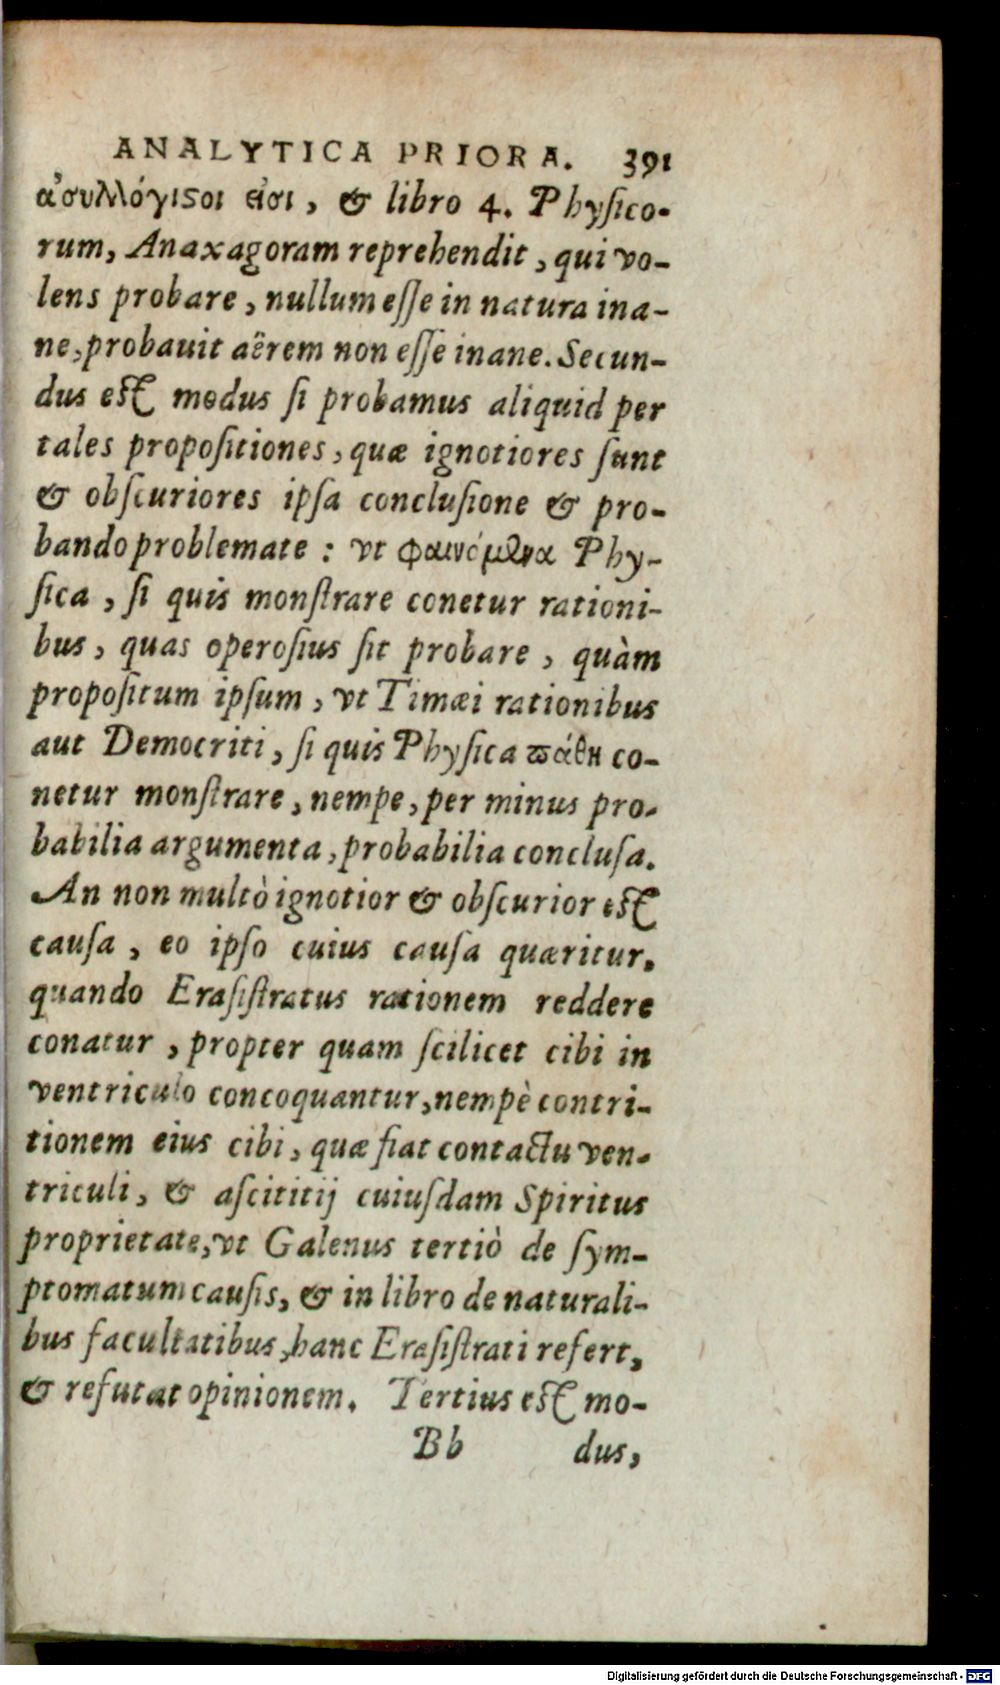 ANALYTICA PRIORA. 391
ἀσυλλόγιϛοι εἰσι, & libro 4. Phyſico-
rum, Anaxagoram reprehendit, qui vo-
lens probare, nullum eſſe in natura ina-
ne, probauit aërem non eſſe inane. Secun-
dus eſt modus ſi probamus aliquid per
tales propoſitiones, quæ ignotiores ſunt
& obſcuriores ipſa concluſione & pro-
bando problemate : vt φαινόμενα Phy-
ſica, ſi quis monſtrare conetur rationi-
bus, quas operoſius ſit probare, quàm
propoſitum ipſum, vt Timæi rationibus
aut Democriti, ſi quis Phyſica ϖάθη co-
netur monſtrare, nempe, per minus pro-
babilia argumenta, probabilia concluſa.
An non multò ignotior & obſcurior eſt
cauſa, eo ipſo cuius cauſa quæritur.
quando Eraſiſtratus rationem reddere
conatur, propter quam ſcilicet cibi in
ventriculo concoquantur, nempè contri-
tionem eius cibi, quæ fiat contactu ven-
triculi, & aſcititij cuiuſdam Spiritus
proprietate, vt Galenus tertiò de ſym-
ptomatum cauſis, & in libro de naturali-
bus facultatibus, hanc Eraſiſtrati refert,
& refutat opinionem. Tertius eſt mo-
Bb dus,
Digitalisierung gefördert durch die Deutsche Forschungsgemeinschaft - DFG